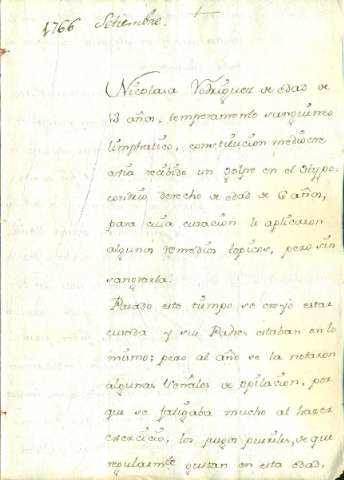 1766 Setiembre.
Nicolasa Rodriguez de edad de
13 años, temperamento sanguineo
limphatico, constitucion mediocre
avia recibido un golpe en el Hypo-
condrio derecho de edad de 6 años,
para cuia curacion le aplicaron
algunos remedios topicos, pero sin
sangrarla.
Pasado este tiempo se creyó estar
curada y sus Padres estaban en lo
mismo; pero al año se la notaron
algunas señales de opilacion, por
que se fatigaba mucho al hazer
exercicio, los juegos pueriles, de que
regularmte gustan en esta edad,